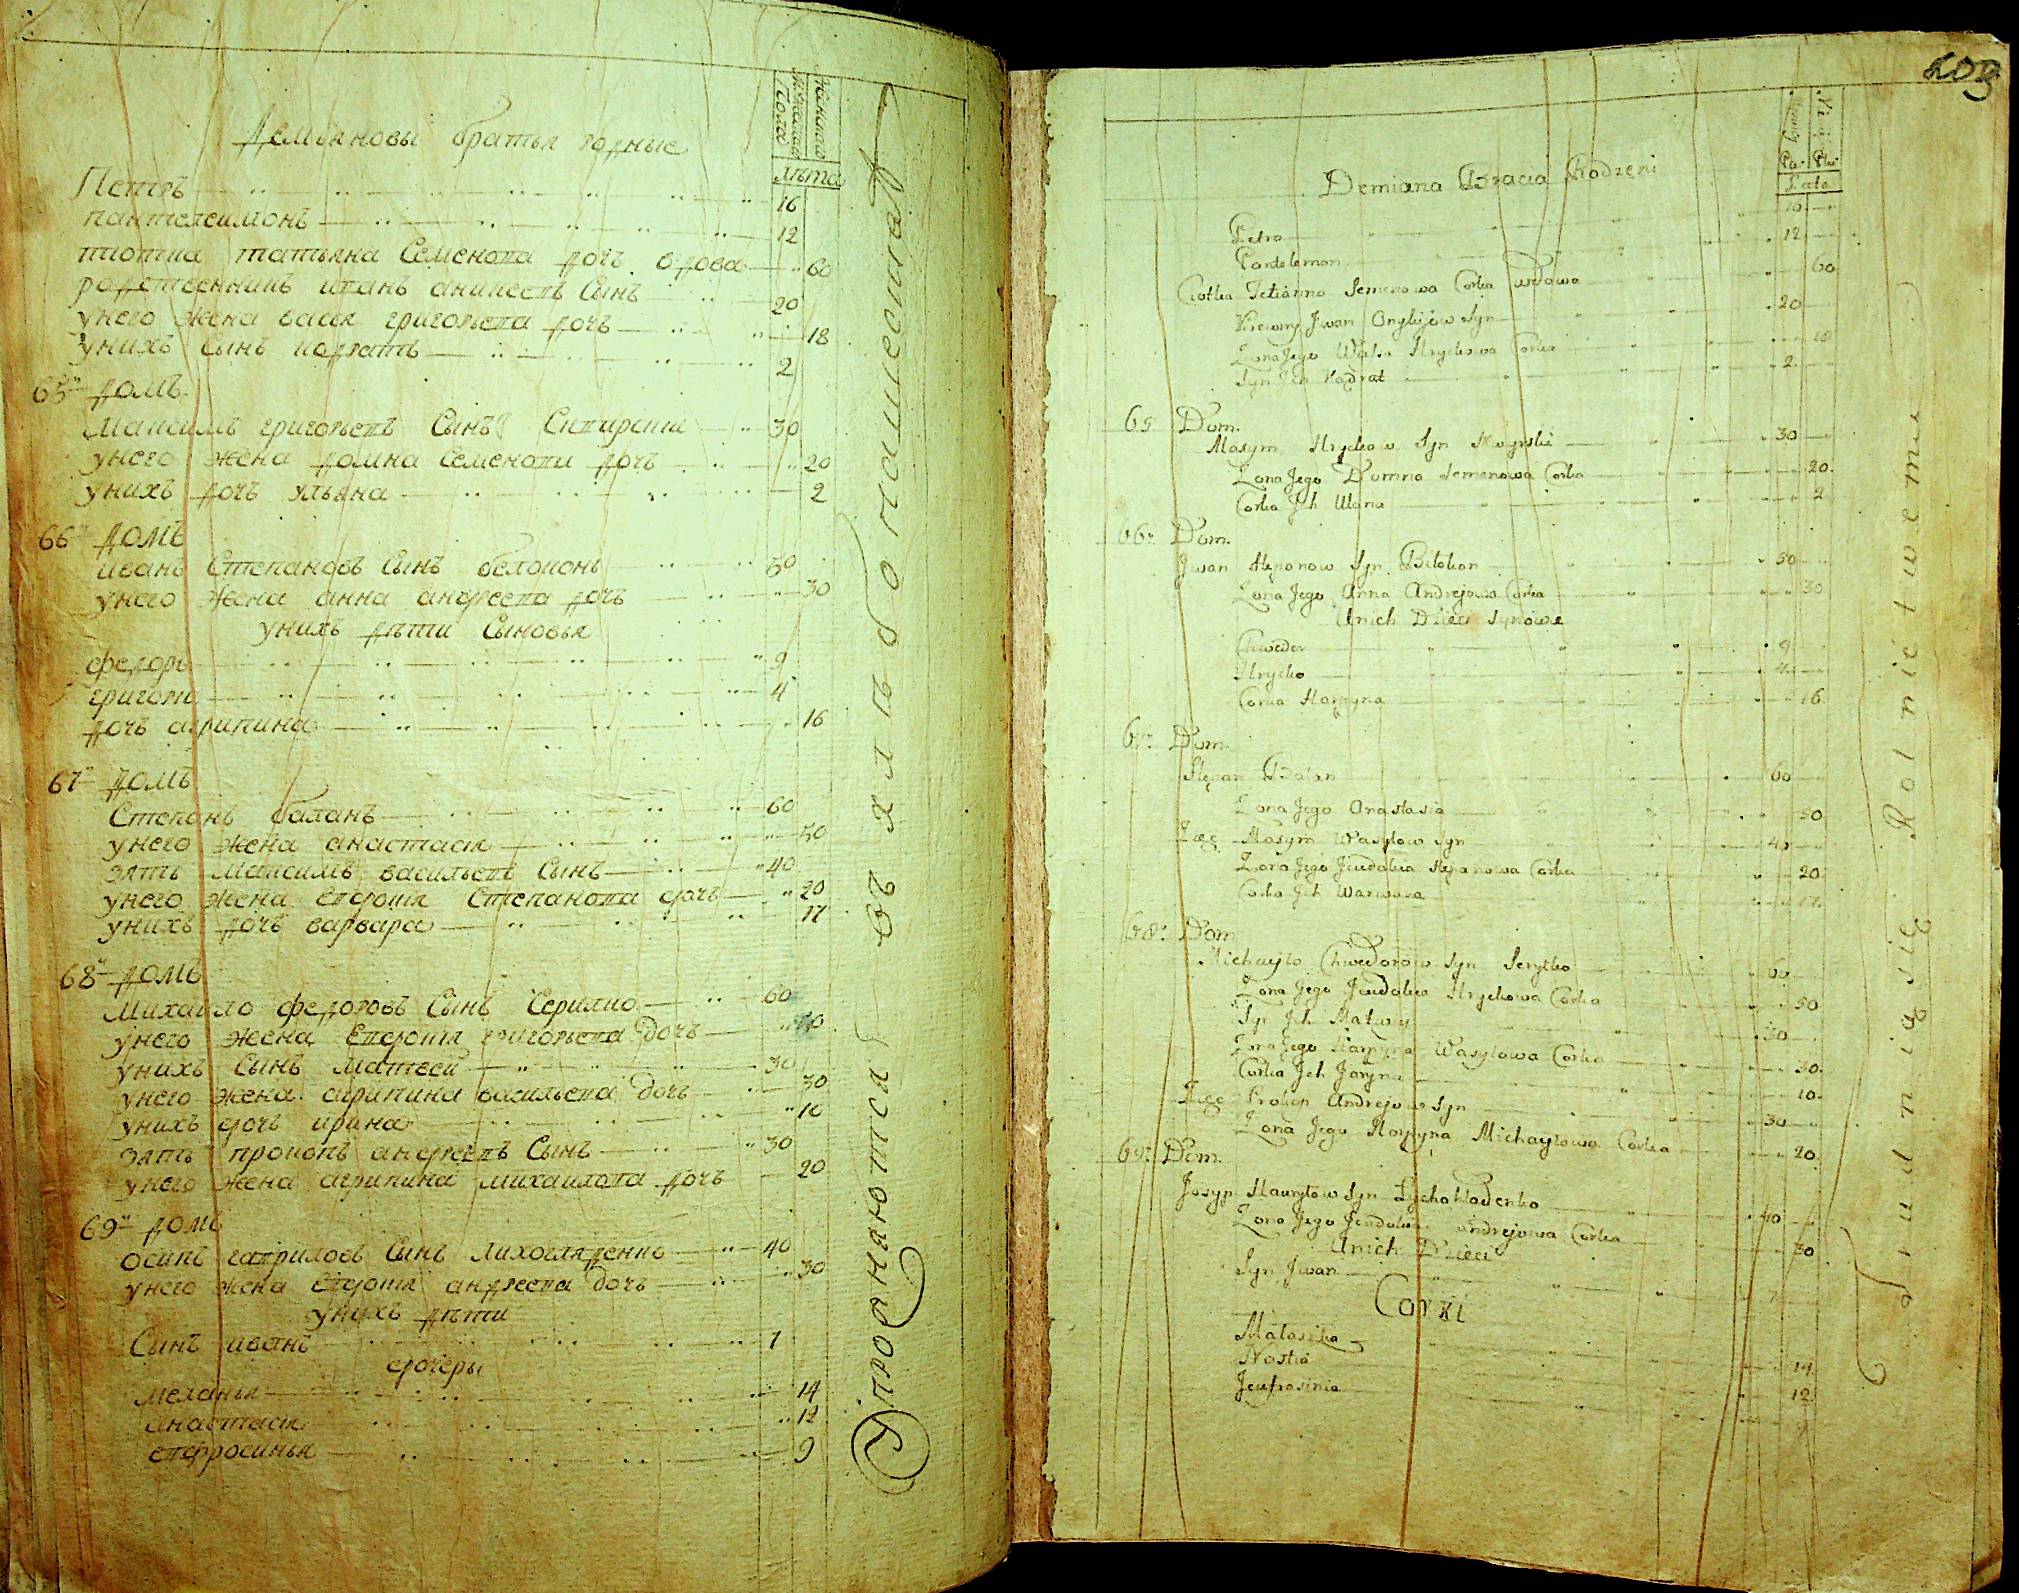 Женскаго
Мужеска
Полов
Лѣта
Демьяновы братья родные
Петръ 16
пантелеимонъ 12
тіотка татьяна Семенова дочь вдова 60
родственникъ иванъ аникеевъ Сынъ 20
унего жена васся григорьева дочь 18
унихъ Сынъ кодратъ 2
65й домъ
Максимъ григорьевъ Сынъ 30
унего жена домна Семенова дочь 20
унихъ дочь ульяна 2
66й домъ
иванъ Степановъ Сынъ белоконь 50
унего жена анна андреева дочь 30
унихъ дѣти Сыновья
федоръ 9
григори 4
дочь агрипина 16
67й домъ
Степанъ баланъ 60
унего жена анастасия 50
зять максимъ васильевъ Сынъ 40
унего жена евдокия Степанова дочь 20
унихъ дочь варвара 17
68й домъ
Михаило федоровъ Сынъ Серилко 60
унего жена Евдокия григорьева дочь 50
унихъ Сынъ матвей 30
унего жена агрипина васильева дочь 30
унихъ дочь ирина 10
зять прокопъ андреевъ Сынъ 30
унего жена агрипина михаилова дочь 20
69й домъ
осипъ гавриловъ Сынъ лихогляденко 40
унего жена Евдокия андреева дочь 30
унихъ дѣти
Сынъ иванъ 7
дочеры
меланья 14
анастасия 12
евфросинья 9
Упражняются въ хлѣбопашестве
203
Lata
Demiana Bracia Rodzeni
Petro 16
Pantelemon 12
Ciotka Tetianna Semenowa Corka wdowa 60
Krewny Jwan Onykijow Syn 20
Zona Jego Waska Hryckowa Corka 18
Syn Jch Kądrat 2
65. Dom.
Maxym Hryckow Syn 30
Zona Jego Domna Semenowa Corka 20
Corka Jch Ulana 2
66. Dom.
Jwan Stepanow Syn Bilokon 50
Zona Jego Anna Andrejowa Corka 30
Unich Dzieci Synowie
Chwedor 9
Hrycko 4
Corka Harpyna 16
67. Dom.
Stepan Bałan 60
Zona Jego Anastasia 50
Zięc Maxym Wasylow Syn 40
Zona Jego Jeudokia Stepanowa Corka 20
Corka Jch Warwara 17
68. Dom
Michayło Chwedorow Syn Serylko 60
Zona Jego Jeudokia Hryckowa Corka 50
Syn Jch Matwiy 30
Zona Jego Harpyna Wasylowa Corka 30
Corka Jch Jaryna 10
Zięc Prokop Andrejow Syn 30
Zona Jego Harpyna Michayłowa Corka 20
69. Dom.
Josyp Hauryłow Syn Lychohladenko 40
Zona Jego Jeudokia Andrejowa Corka 30
Unich Dzieci
Syn Jwan 7
Corki
Małaszka 14
Nastia 12
Jeufrosinia 9
Trudnią się Rolnictwemu